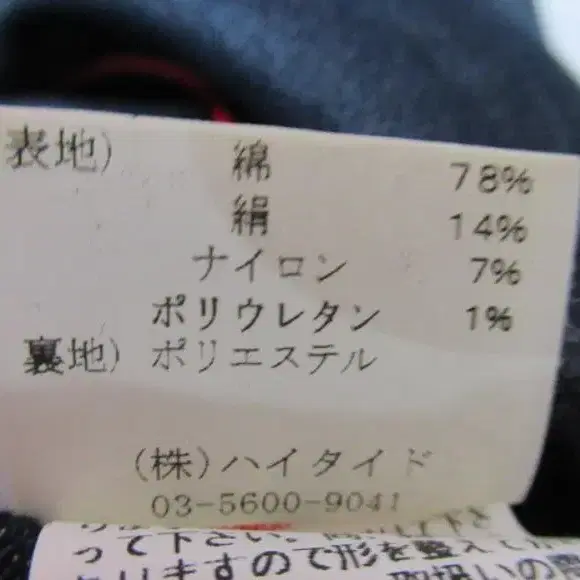 表地) 綿 78%
絹 14%
ナイロン 7%
ポリウレタン 1%
裏地) ポリエステル
(株)ハイタイド
03-5600-9041
って下さい。
りますので形を整えて
取扱いの